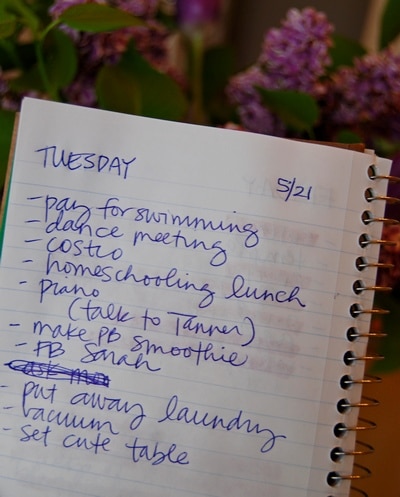 TUESDAY
5/21
- pay for swimming
- dance meeting
- costco
- homeschooling lunch
- piano
(talk to Tanner)
- make PB smoothie
- FB Sarah
- put away laundry
- vacuum
- set cute table